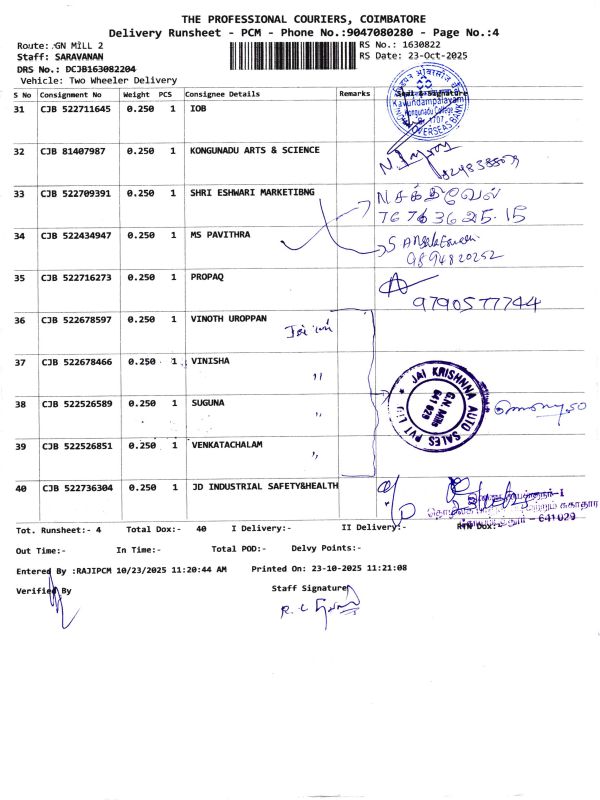 THE PROFESSIONAL COURIERS, COIMBATORE
Delivery Runsheet - PCM - Phone No.:9047080280 - Page No.:4
Route: GN MILL 2
RS No.: 1630822
Staff: SARAVANAN
RS Date: 23-Oct-2025
DRS No.: DCJB163082204
Vehicle: Two Wheeler Delivery
S No Consignment No Weight PCS Consignee Details Remarks Seal & Signature
31 CJB 522711645 0.250 1 IOB
Kavundampalayam
Kongunadu College
1707
OVERSEAS BANK
32 CJB 81407987 0.250 1 KONGUNADU ARTS & SCIENCE
33 CJB 522709391 0.250 1 SHRI ESHWARI MARKETIBNG
N சக்திவேல்
76 76 36 25 15
34 CJB 522434947 0.250 1 MS PAVITHRA
9894820252
35 CJB 522716273 0.250 1 PROPAQ
9790577744
36 CJB 522678597 0.250 1 VINOTH UROPPAN
37 CJB 522678466 0.250 1 VINISHA
"
38 CJB 522526589 0.250 1 SUGUNA
"
JAI KRISHNNA AUTO SALES PVT LTD
G.N. Mills
641 029
39 CJB 522526851 0.250 1 VENKATACHALAM
"
40 CJB 522736304 0.250 1 JD INDUSTRIAL SAFETY&HEALTH
641029
Tot. Runsheet:- 4 Total Dox:- 40 I Delivery:- II Delivery:- RTN Dox:-
Out Time:- In Time:- Total POD:- Delvy Points:-
Entered By :RAJIPCM 10/23/2025 11:20:44 AM Printed On: 23-10-2025 11:21:08
Verified By Staff Signature